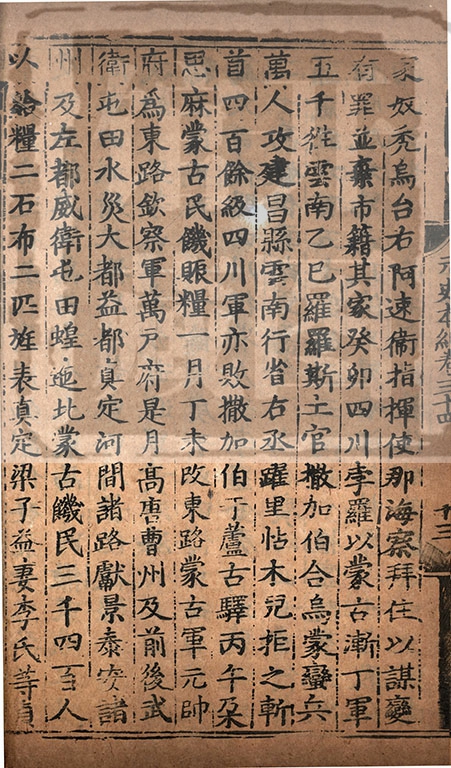 家奴禿烏台右阿速衞指揮使那海察拜住以謀變
有罪並棄市籍其家癸卯四川孛羅以蒙古漸丁軍
五千徃雲南乙巳羅羅斯土官撒加伯合烏蒙蠻兵
萬人攻建昌縣雲南行省右丞躍里帖木兒拒之斬
首四百餘級四川軍亦敗撒加伯于蘆古驛丙午朶
思麻蒙古民饑賑糧一月丁未攺東路蒙古軍元帥
府爲東路欽察軍萬戸府是月髙唐曹州及前後武
衛屯田水災大都益都眞定河間諸路獻景泰安諸
州及左都威衛屯田蝗迤北蒙古饑民三千四百人
以給糧二石布二匹旌表真定梁子益妻李氏等貞
元史本紀卷三十四
十三